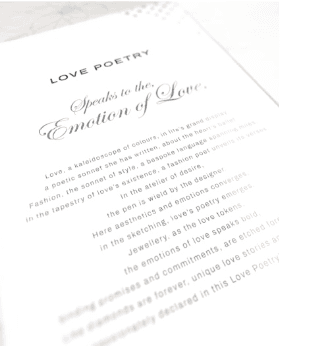 LOVE POETRY
Speaks to the,
Emotion of Love.
Love, a kaleidoscope of colours, in life's grand
a poetic sonnet she has written, about the heart's
Fashion, the sonnet of style, a bespoke language
in the tapestry of love's existence, a fashion poet
In the atelier of desire,
the pen is wield by the designer
Here aesthetics and emotions converges
in the sketching, love's poetry emerges
Jewellery, as the love tokens
the emotions of love speaks
Binding promises and commitments, are etched
Like diamonds are forever, unique love stories
declared in this Love Poetry